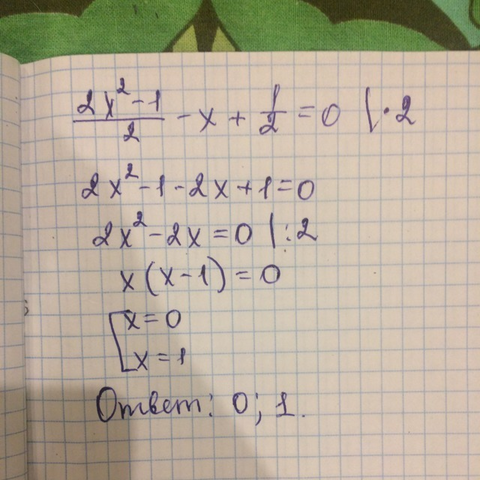 (2x² - 1)/2 - x + 1/2 = 0 | · 2
2x² - 1 - 2x + 1 = 0
2x² - 2x = 0 | : 2
x(x - 1) = 0
[x = 0
x = 1
Ответ: 0; 1.